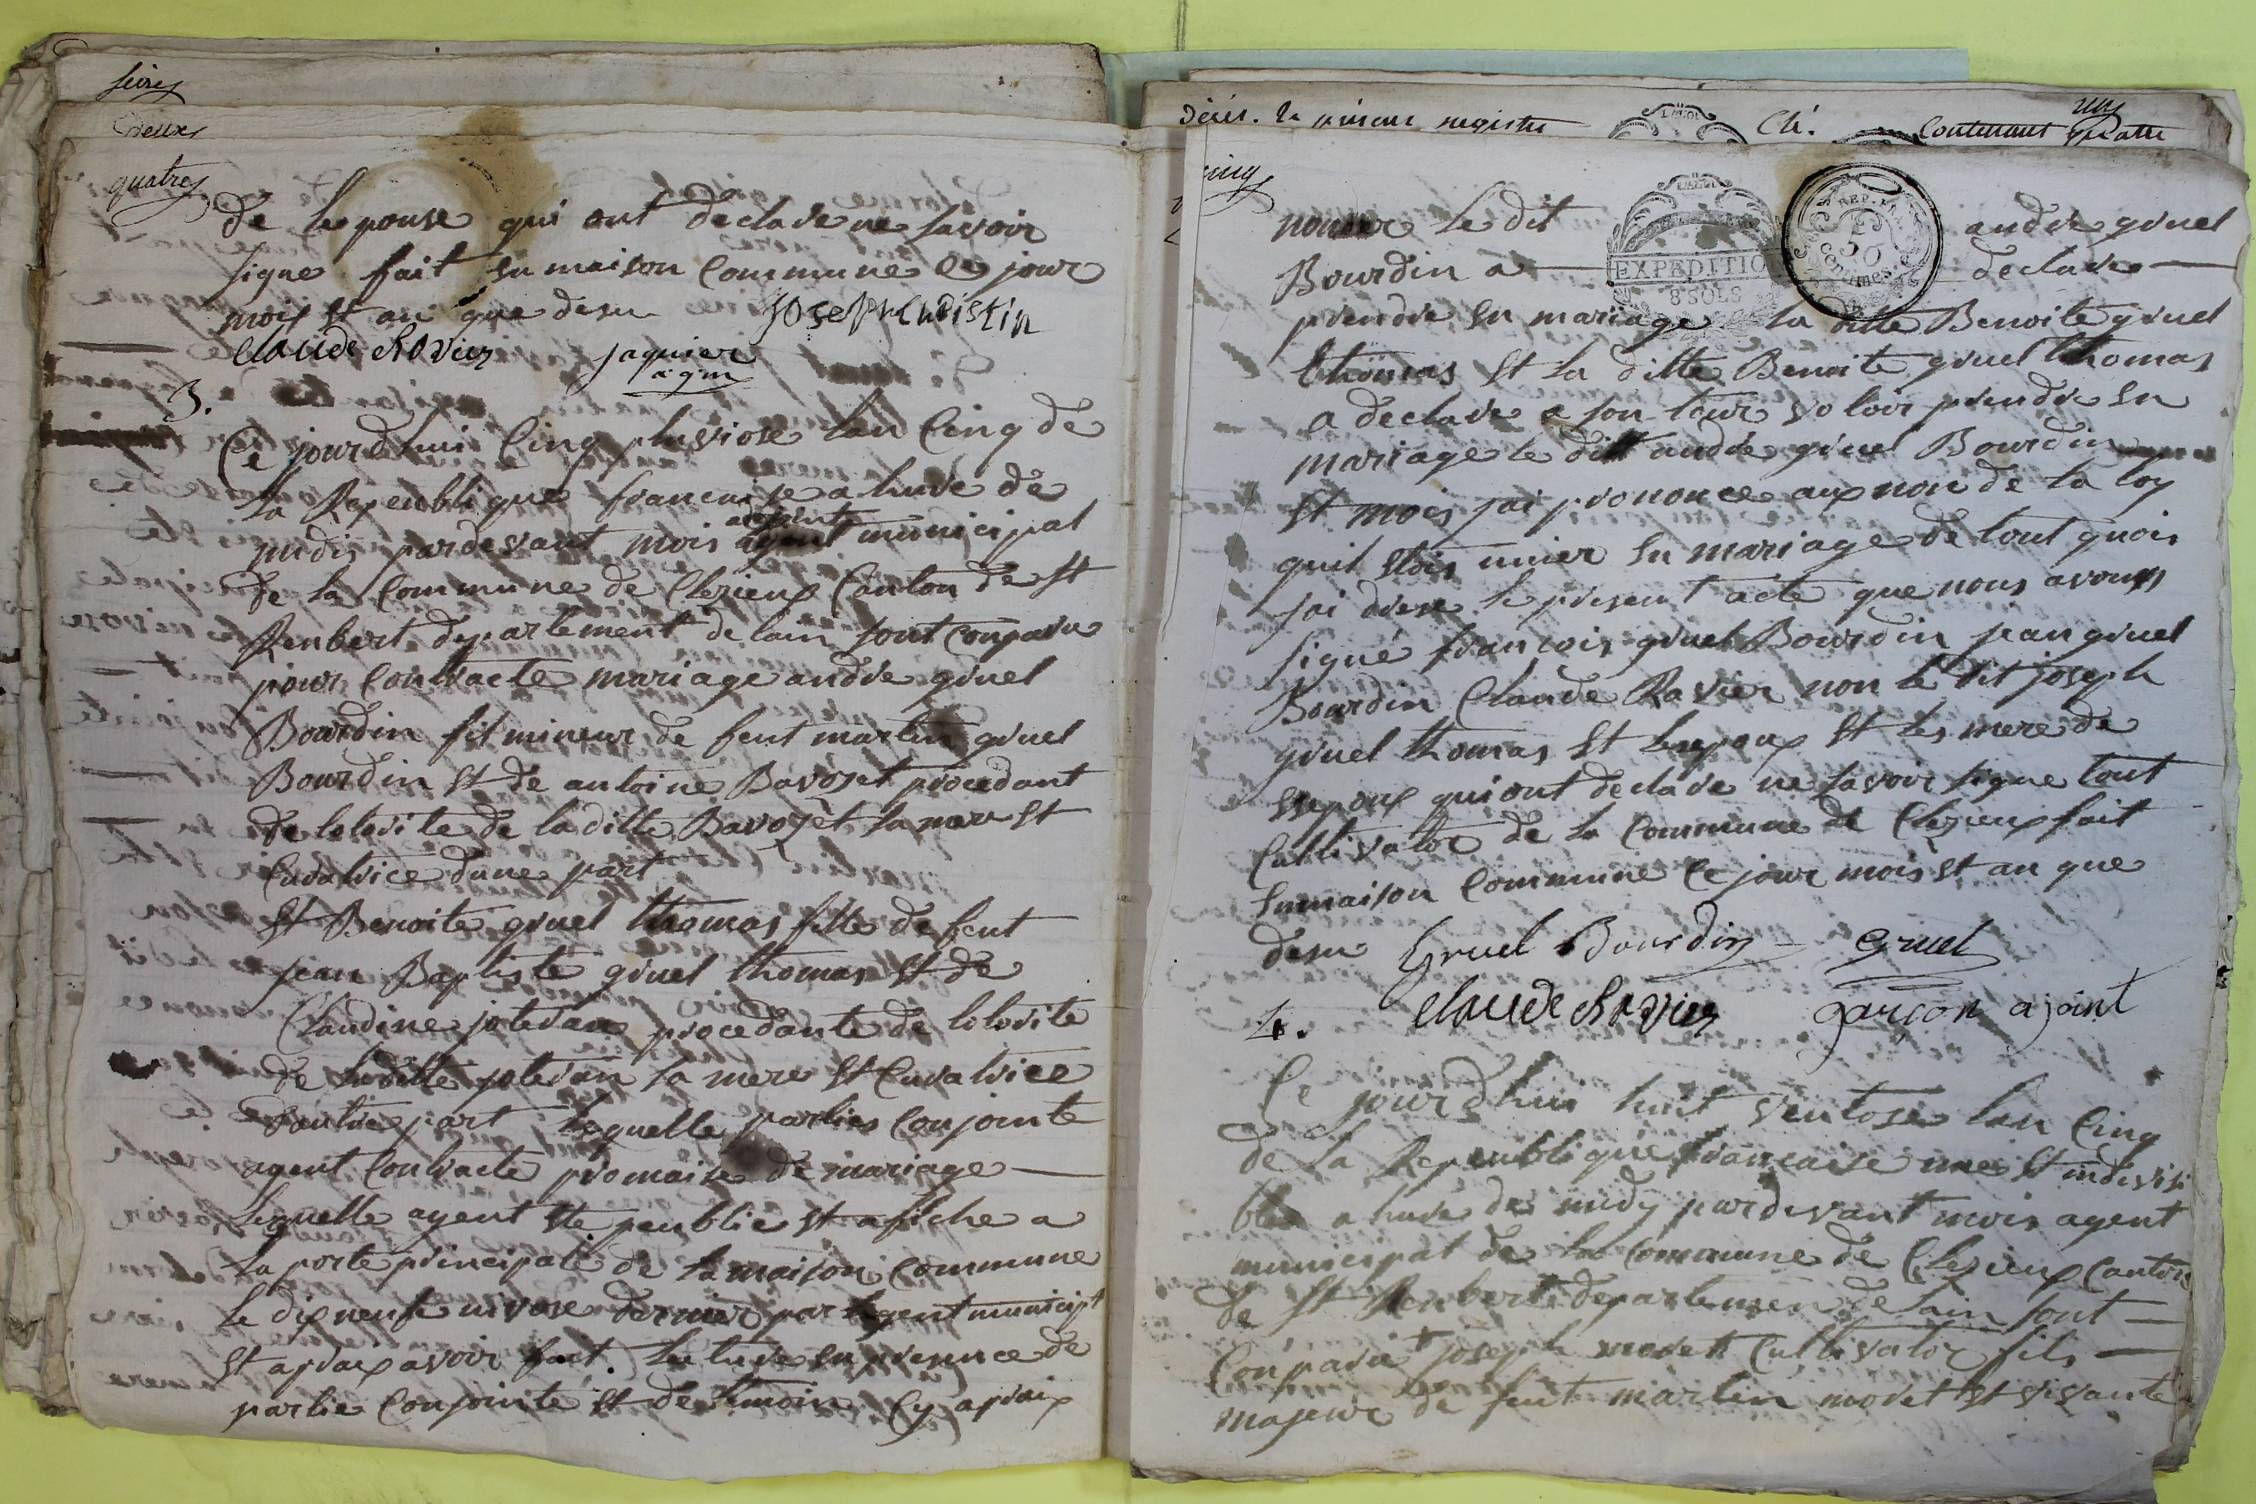 deux
quatre
de lepouse qui ont declare ne savoir
signe fait en maison commune le jour
mois et an que desu Joseph Christin
Claude Ravier jaquier
agm
3.
Ce jourdhui Cinq pluviose lan Cinq de
la Repeublique francaise a hure de
midis pardevant mois adjoint municipal
de la Commune de Clezieux Canton de St
Renbert departement de lain sont Conparu
pour Contracte mariage andre gruel
Bourdin fil mineur de feut martin gruel
Bourdin et de antoine Bavozet procedant
de lotorite de la ditte Bavozet sa mere et
Curatrice dune part
et Benoite gruel thomas fille de feut
jean Baptiste gruel thomas et de
Claudine jotevan procedante de lotorite
de laditte jotevan sa mere et Curatrice
dautre part lequelle parties Conjointe
agent Contracte promaise de mariage
lequelle agent ete peublie et afiche a
la porte principale de la maison Commune
le dix neuf nivose dernier par lagent municipt
et apraix avoir fait lecture en presence de
partie Conjointe et de temoin Cy apraix
Décés. le présent registre Clé. Contenant quatre
cinq
nomer le dit andre gruel
EXPEDITION
8 SOLS
REP. FRA
Centimes
Bourdin a declare
prendre en mariage la ditte Benoite gruel
thomas et la ditte Benoite gruel thomas
a declare a son tour voloir prendre en
mariage le ditt andre gruel Bourdin
et mois jai prononce aux nom de la loy
quil etois unier en mariage de tout quois
jai drese le present acte que nous avons
signé francois gruel Bourdin jean gruel
Bourdin Claude Ravier non le dit joseph
gruel thomas et lepoux et les mere de
epoux qui ont declare ne savoir signe tout
Cultivator de la Commune de Clezieux fait
enmaison Commune Ce jour mois et an que
desu Gruel Bourdin Gruel
Claude Ravier garcon ajoint
4.
Ce jourdhui huit ventose lan Cinq
de la Repeublique francaise une et indivisi
ble a hure de midy pardevant mois agent
municipal de la Commune de Clezieux Canton
de St Renbert departemen de lain sont
Conparu joseph moret Cultivator fils
majeur de feut martin moret et vivante